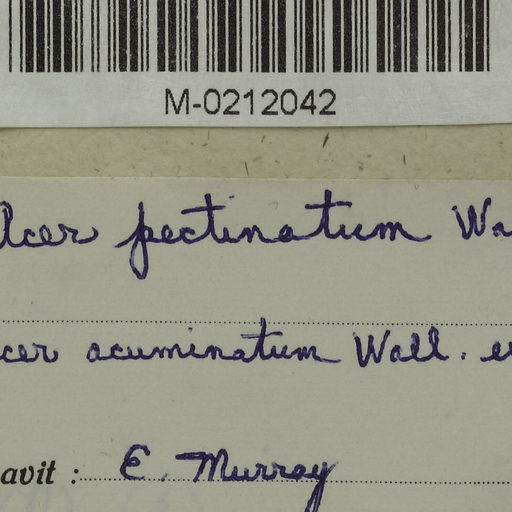 M-0212042
Acer pectinatum Wa
cer acuminatum Wall. e
avit : E. Murray